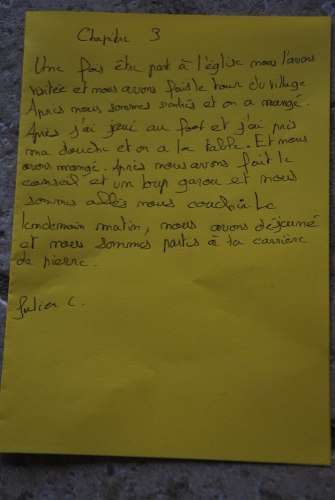 Chapitre 3
Une fois être parti à l'église nous l'avons
visitée et nous avons fais le tour du village
Apres nous sommes rentrés et on a mangé.
Après j'ai joué au foot et j'ai pris
ma douche et on a la table. Et nous
avons mangé. Après nous avons fait le
conseil et un loup garou et nous
sommes allés nous coucher. Le
lendemain matin, nous avons déjeuné
et nous sommes partis à la carrière
de pierre.
Julien C.